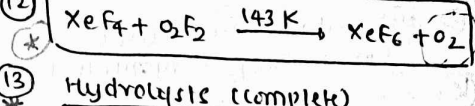 (12)
XeF4 + O2F2 143 K → XeF6 + O2
(13) Hydrolysis (complete)